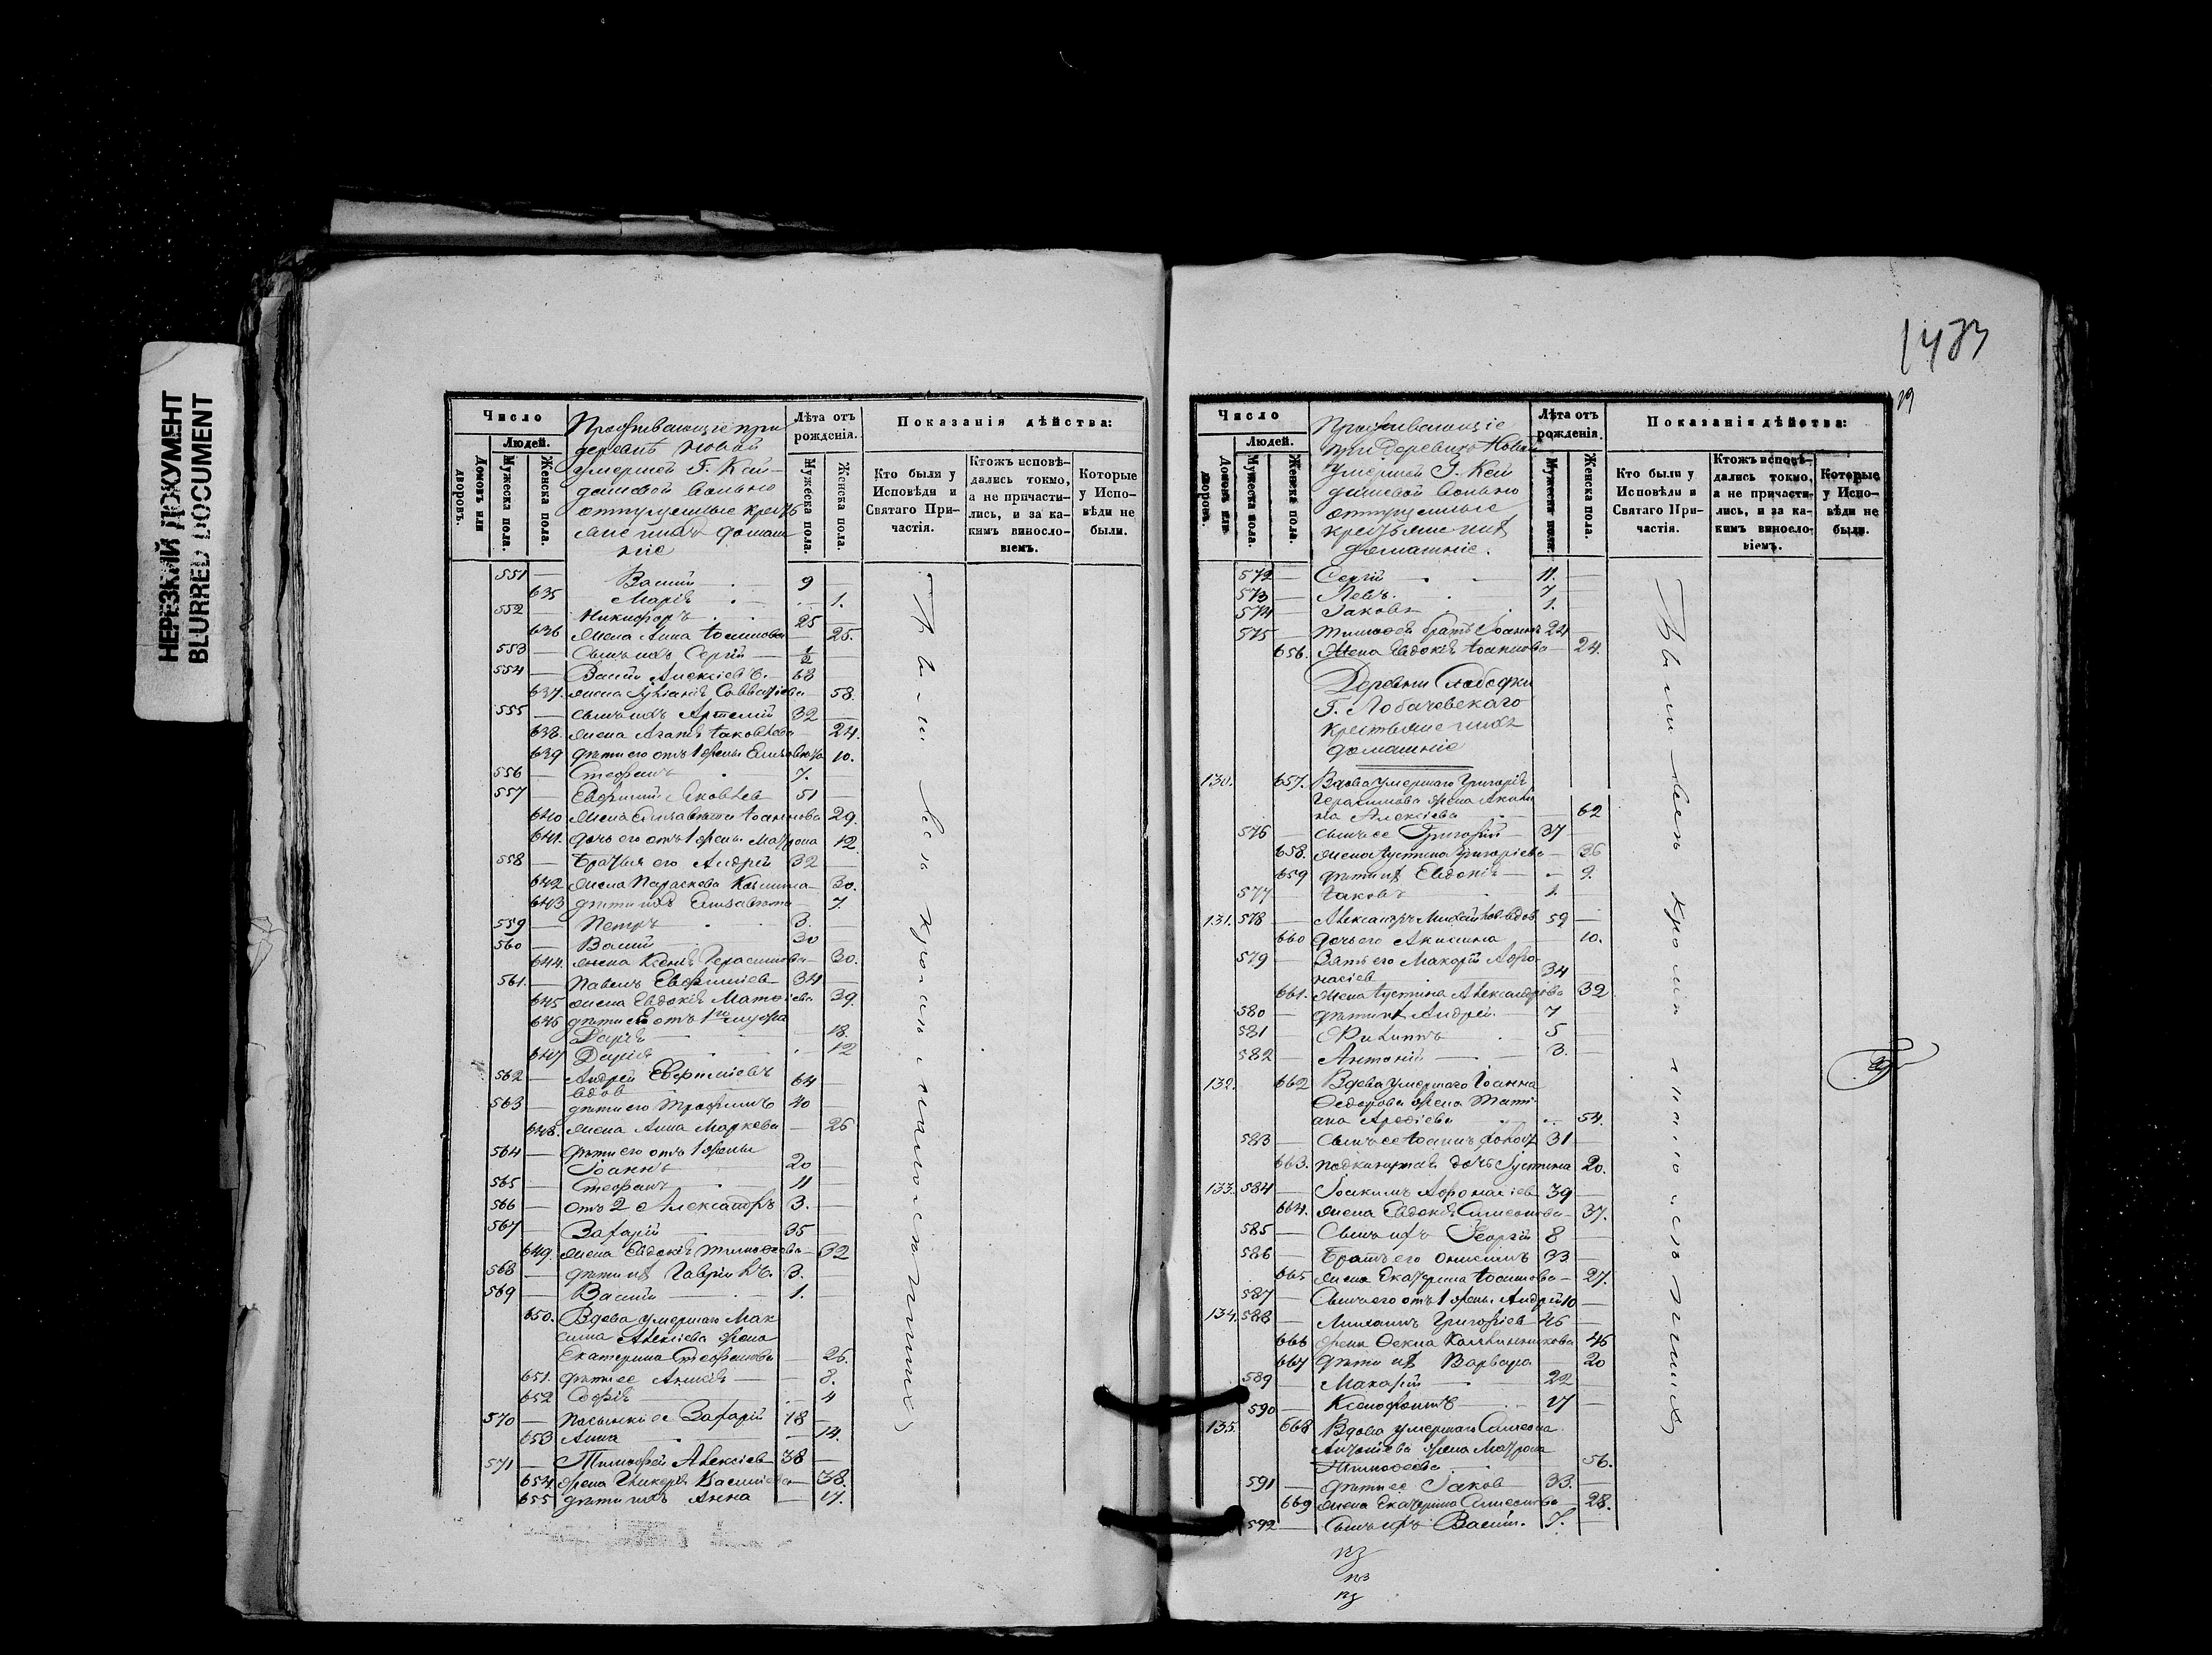 НЕРЕЗКИЙ ДОКУМЕНТ
BLURRED DOCUMENT
Число
Людей.
Домовъ или дворовъ.
Мужеска пола.
Женска пола.
Проживающіе при
деревнѣ Новой
умершей Г. Кай-
дашевой вольно
отпущенные кресть
яне и ихъ домаш
ніе
Лѣта отъ рожденія.
Мужеска пола.
Женска пола.
Показанія дѣйства:
Кто были у Исповѣди и Святаго Причастія.
Ктожъ исповѣдались токмо, а не причастились, и за какимъ винословіемъ.
Которые у Исповѣди не были.
551 — Васілій 9 —
635 Марія — 1.
552 — Никифоръ 25 —
636 Жена Анна Іоаннова — 25.
553 — Сынъ ихъ Сергій 1/2
554 — Васілій Алексіевъ 68
637. жена Іуліанія Савватіева — 58.
555 — сынъ ихъ Артемій 32 —
638. жена Агафія Іаковлева — 24.
639 дѣти его отъ 1 жены Елисавета 10.
556 — Стефанъ 7.
557 — Евфимій Яковлев 51 —
640 жена Елисавета Іоаннова 29.
641. дочь его отъ 1 жены Матрона 12
558 — Братья его Андрей 32 —
642 жена Параскева Косьмина — 30.
643 дѣти ихъ Елисавета — 7.
559 — Петръ 3. —
560 — Васілій 30
644. жена Ксенія Герасимова — 30.
561. — Павелъ Евфиміев 34 —
645 жена Евдокія Матвіева 39.
646 дѣти ея отъ 1го мужа
Дарія — 18.
647 Дарія — 12
562 — Андрей Евфиміевъ
вдов 64 —
563 — дѣти его Трофимъ 40 —
648. жена Анна Маркова — 26
564 — дѣти его отъ 1 жены
Іоаннъ 20 —
565 — Стефанъ 11 —
566 — отъ 2 Александръ 3. —
567 — Захарій 35
649. жена Евдокія Тимофеева — 32
568 — дѣти ихъ Гавріилъ 3. —
569 — Васілій 1.
650. Вдова умершаго Мак
сима Алексіева жена
Екатерина Стефанова — 26.
651. дѣти ее Анисія — 8.
652 Софія 4
570 — Пасынки ее Захарій 18 —
653 Анна — 14.
571 — Тимофей Алексіев 38 —
654. жена Гликерія Васильева — 38.
655 дѣти ихъ Анна — 17.
Были всѣ кромѣ
1473
19
Число
Людей.
Домовъ или дворовъ.
Мужеска пола.
Женска пола.
Проживающіе
при Деревнѣ Новой
Умершей Г. Кай
дашевой вольно
отпущенные
крестьяне и ихъ
домашніе.
Лѣта отъ рожденія.
Мужеска пола.
Женска пола.
Показанія дѣйства:
Кто были у Исповѣди и Святаго Причастія.
Ктожъ исповѣдались токмо, а не причастились, и за какимъ винословіемъ.
Которые у Исповѣди не были.
572 — Сергій 11. —
573 — Левъ 7
574 — Іаковъ 1.
575 — Тимофея братъ Іоаннъ 24
656. Жена Евдокія Іоакимова — 24.
Деревни Слободки
Г. Лобачевскаго
крестьяне и ихъ
домашніе
130. 657. Вдова умершаго Григорія
Герасимова жена Акили
на Алексіева 62
576 — сынъ ее Григорій 37 —
658. жена Іустина Григоріева — 36
659 дѣти ихъ Евдокія — 9.
577 — Іаковъ 1.
131. 578 — Александръ Михайлов вдов 59 —
660 дочь его Акилина 10.
579 — Зять его Макарій Афа-
насіев 34 —
661. жена Іустина Александрова 32
580 — дѣти ихъ Андрей 7
581 — Филиппъ 5 —
582 — Антоній 3.
132. 662 Вдова умершаго Іоанна
Ѳедорова жена Тати-
ана Арефіева 54.
583 — Сынъ ее Іоаннъ холост 31 —
663. подкинутая дочь Іустина 20.
133. 584 — Іоакимъ Афанасіев 39 —
664. жена Евдокія Симеонова — 37.
585 — Сынъ ихъ Георгій 8 —
586 — Братъ его Онисимъ 33 —
665 жена Екатерина Іоаннова — 27.
587 — Сынъ его отъ 1 жены Андрей 10 —
134. 588 — Михаилъ Григоріев 46 —
666 жена Ѳекла Каллинникова 46
667 дѣти ихъ Варвара 20
589 — Макарій 22
590 — Ксенофонтъ 17 —
135. 668 Вдова умершаго Симеона
жена Матрона
Тимофеева 56.
591 — дѣти ее Іаков 33. —
669 жена Екатерина Симеонова 28.
592 — Сынъ ихъ Васілій. 7. —
Были всѣ кромѣ